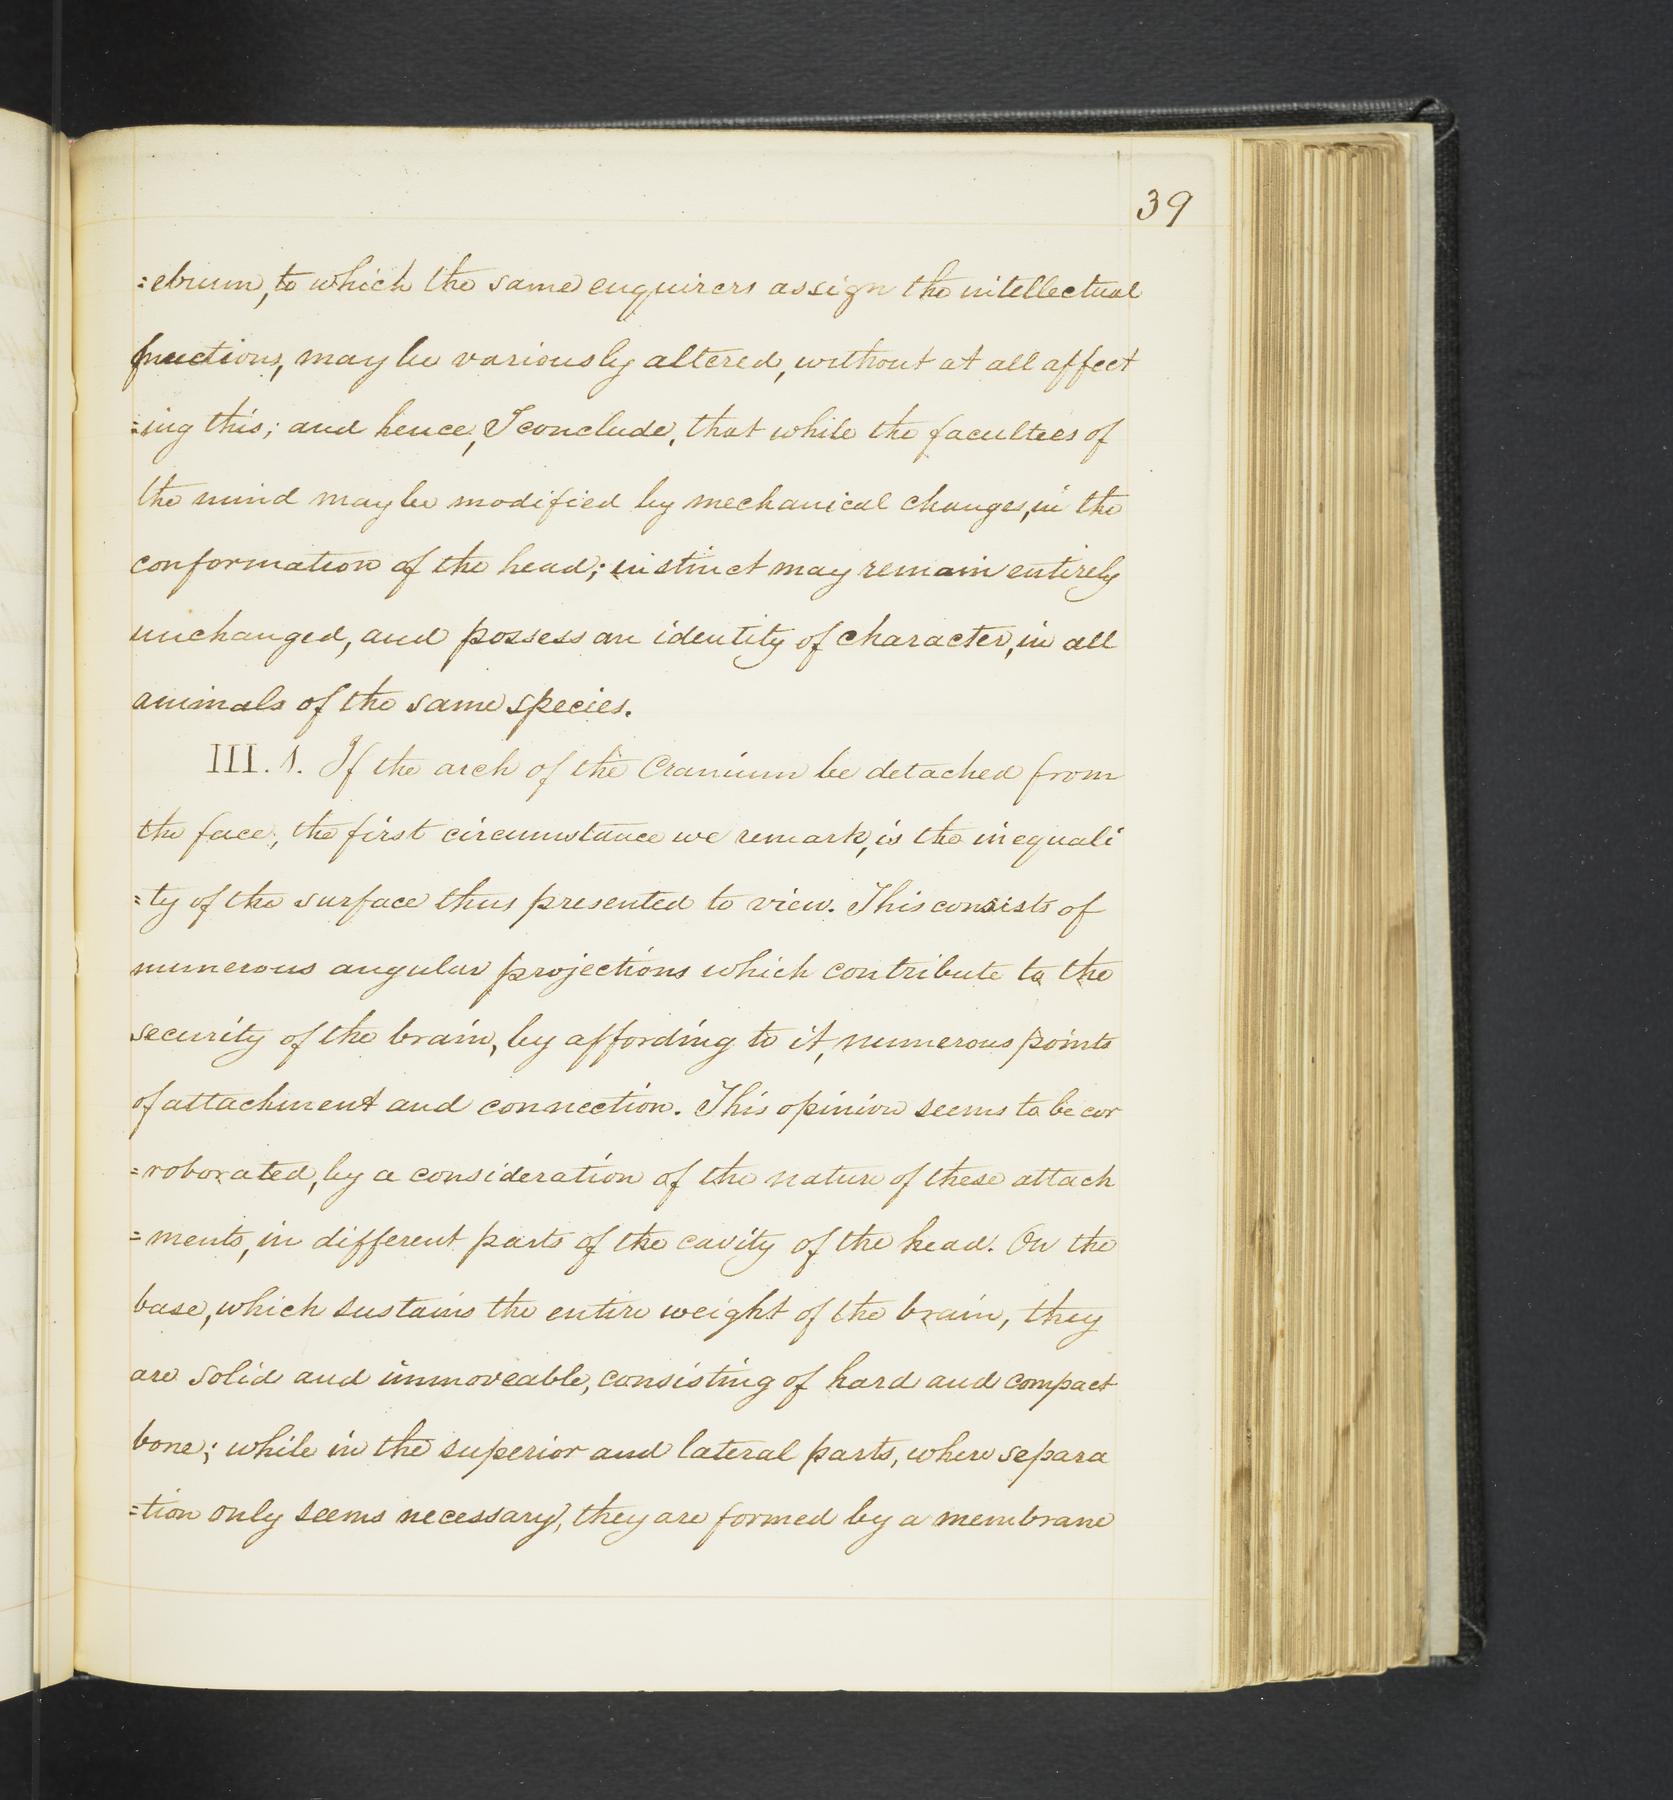 39
=ebrum, to which the same enquirers assign the intellectual
functions, may be variously altered, without at all affect
=ing this; and hence, I conclude, that while the facultees of
the mind may be modified by mechanical changes, in the
conformation of the head; instinct may remain entirely
unchanged, and possess an identity of character, in all
animals of the same species.
III. 1. If the arch of the Cranium be detached from
the face; the first circumstance we remark, is the inequali
=ty of the surface thus presented to view. This consists of
numerous angular projections which contribute to the
security of the brain, by affording to it, numerous points
of attachment and connection. This opinion seems to be cor
=roborated, by a consideration of the nature of these attach
=ments, in different parts of the cavity of the head. On the
base, which sustains the entire weight of the brain, they
are solid and immoveable, consisting of hard and compact
bone; while in the superior and lateral parts, where separa
=tion only seems necessary, they are formed by a membrane